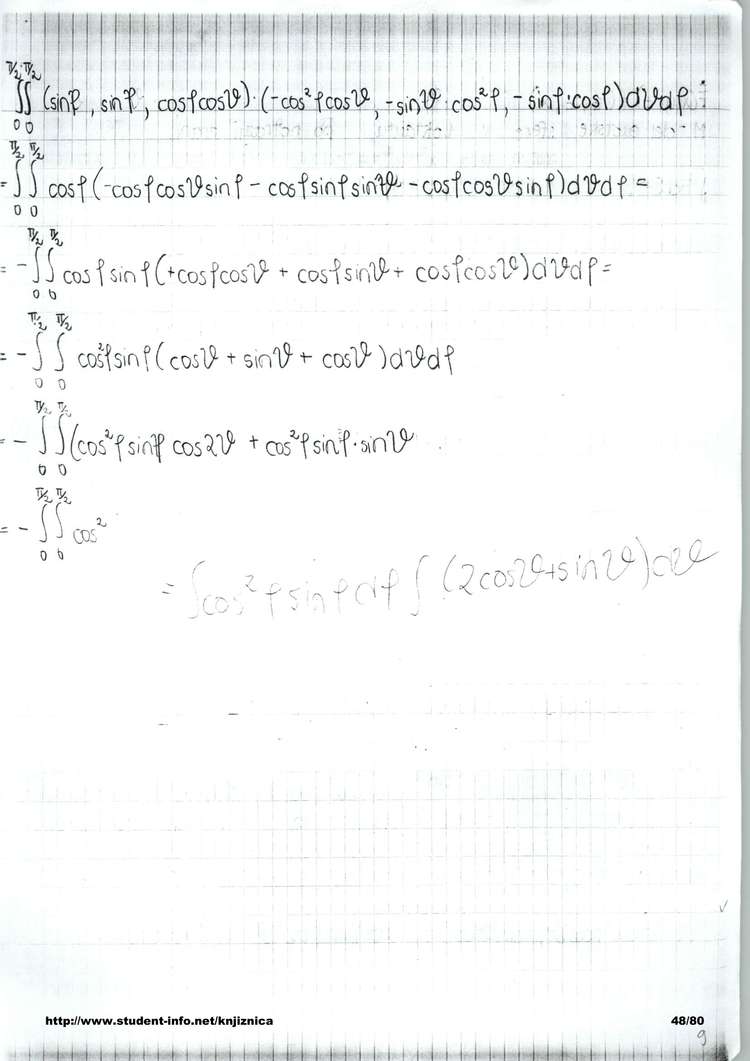 π/2 π/2
∬ (sinφ, sinφ, cosφcosϑ)·(-cos²φcosϑ, -sinϑ·cos²φ, -sinφ·cosφ)dϑdφ =
0 0
π/2 π/2
= ∫∫ cosφ(-cosφcosϑsinφ - cosφsinφsinϑ - cosφcosϑsinφ)dϑdφ =
0 0
π/2 π/2
= -∫∫ cosφsinφ(+cosφcosϑ + cosφsinϑ + cosφcosϑ)dϑdφ =
0 0
π/2 π/2
= -∫∫ cos²φsinφ(cosϑ + sinϑ + cosϑ)dϑdφ
0 0
π/2 π/2
= -∫∫(cos²φsinφ cos2ϑ + cos²φsinφ·sinϑ
0 0
π/2 π/2
= -∫∫ cos²
0 0
= ∫cos²φsinφdφ ∫(2cosϑ+sinϑ)dϑ
http://www.student-info.net/knjiznica 48/80
9